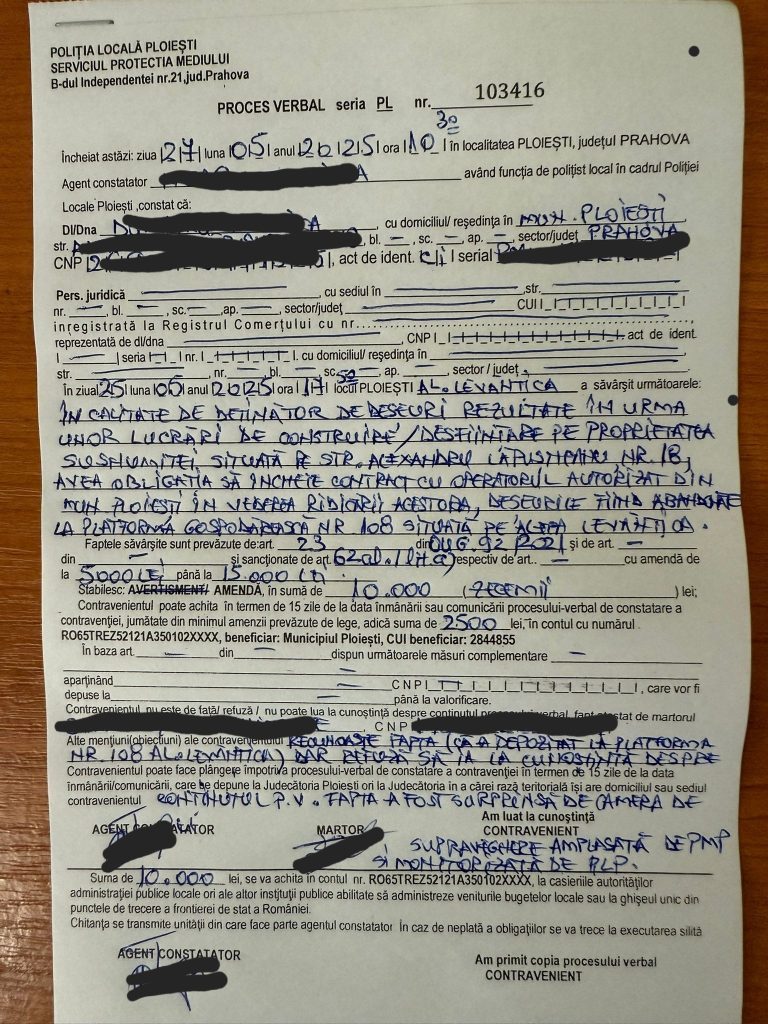 POLIȚIA LOCALĂ PLOIEȘTI
SERVICIUL PROTECTIA MEDIULUI
B-dul Independentei nr.21,jud.Prahova
PROCES VERBAL seria PL nr. 103416
Încheiat astăzi: ziua |27| luna |05| anul |2025| ora |10 30| în localitatea PLOIEȘTI, județul PRAHOVA
Agent constatator având funcția de polițist local în cadrul Poliției
Locale Ploiești ,constat că:
Dl/Dna cu domiciliul/ reședința în MUN. PLOIEȘTI
str. , bl. – , sc. – , ap. – , sector/județ PRAHOVA
CNP , act de ident. CI | serial
Pers. juridică , cu sediul în ,str.
nr. – , bl. – , sc. – ,ap. – , sector/județ CUI
inregistrată la Registrul Comerțului cu nr.
reprezentată de dl/dna , CNP act de ident.
seria nr. cu domiciliul/ reședința în
str. , nr. – , bl. – , sc. – , ap. – , sector / județ
În ziua |25| luna |05| anul |2025| ora |17 50| locul PLOIEȘTI AL. LEVANTICA a săvârșit următoarele:
ÎN CALITATE DE DEȚINĂTOR DE DESEURI REZULTATE ÎN URMA
UNOR LUCRĂRI DE CONSTRUIRE/DESFIINTARE PE PROPRIETATEA
SUSNUMITEI, SITUATĂ PE STR. ALEXANDRU LĂPUȘNEANU NR. 18,
AVEA OBLIGAȚIA SĂ INCHEIE CONTRACT CU OPERATORUL AUTORIZAT DIN
MUN PLOIESTI ÎN VEDEREA RIDICĂRII ACESTORA, DESEURILE FIIND ABANDONATE
LA PLATFORMA GOSPODĂREASCĂ NR 108 SITUATĂ PE ALEEA LEVĂNȚICA.
Faptele săvârșite sunt prevăzute de:art. 23 din OUG. 92/2021 și de art. –
din – și sancționate de art. 62 al. 1 lit. a) respectiv de art. – cu amendă de
la 5000 LEI până la 15.000 LEI
Stabilesc: AVERTISMENT/ AMENDĂ, în sumă de 10.000 (ZECEMII) lei;
Contravenientul poate achita în termen de 15 zile de la data înmânării sau comunicării procesului-verbal de constatare a
contravenției, jumătate din minimul amenzii prevăzute de lege, adică suma de 2500 lei, în contul cu numărul
RO65TREZ52121A350102XXXX, beneficiar: Municipiul Ploiești, CUI beneficiar: 2844855
În baza art. – din – dispun următoarele măsuri complementare –
aparținând CNP , care vor fi
depuse la – până la valorificare.
Contravenientul nu este de față/ refuză / nu poate lua la cunoștință despre conținutul procesului-verbal, fapt atestat de martorul
CNP
Alte mențiuni(obiecțiuni) ale contravenientului RECUNOAȘTE FAPTA (CĂ A DEPOZITAT LA PLATFORMA
NR. 108 AL. LEVANTICA) DAR REFUZĂ SĂ IA LA CUNOSTINTĂ DESPRE
Contravenientul poate face plângere împotriva procesului-verbal de constatare a contravenției în termen de 15 zile de la data
înmânării/comunicării, care se depune la Judecătoria Ploiești ori la Judecătoria in a cărei rază teritorială își are domiciliul sau sediul
contravenientul CONTINUTUL P.V. FAPTA A FOST SURPRINSĂ DE CAMERA DE
Am luat la cunoștință
AGENT CONSTATATOR MARTOR CONTRAVENIENT
SUPRAVEGHERE AMPLASATĂ DE PMP
SI MONITORIZATĂ DE PLP.
Suma de 10.000 lei, se va achita în contul nr. RO65TREZ52121A350102XXXX, la casieriile autorităților
administrației publice locale ori ale altor instituții publice abilitate să administreze veniturile bugetelor locale sau la ghișeul unic din
punctele de trecere a frontierei de stat a României.
Chitanța se transmite unității din care face parte agentul constatator În caz de neplată a obligațiilor se va trece la executarea silită
AGENT CONSTATATOR
Am primit copia procesului verbal
CONTRAVENIENT